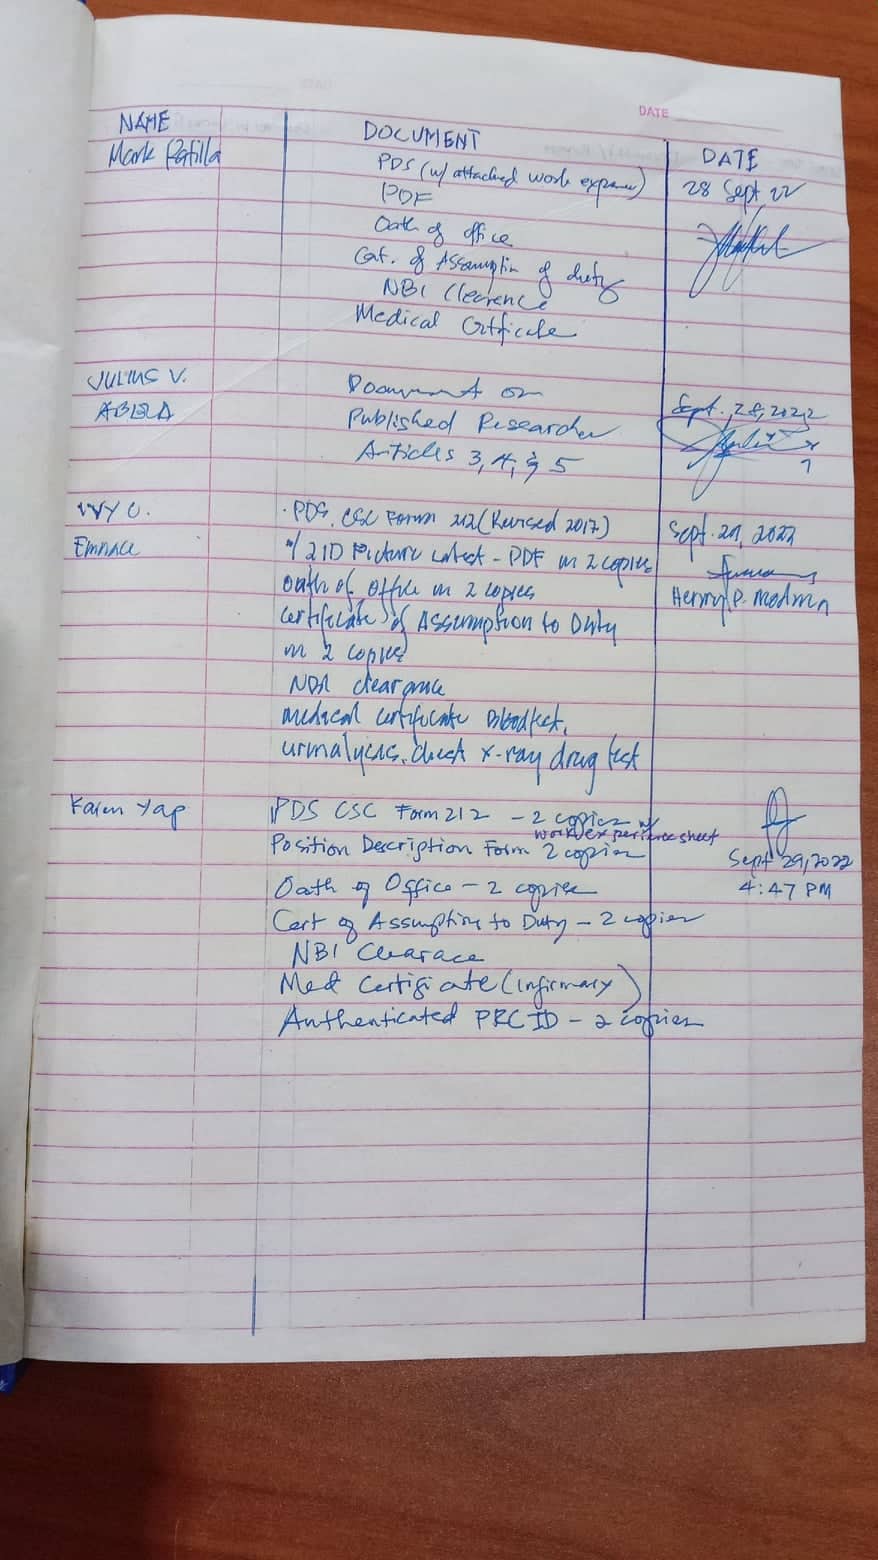 DATE
NAME DOCUMENT DATE
Mark PDS (w/ attached work 28 Sept 22
PDF
Oath of office
Cert. of Assumption of duty
NBI Clearence
Medical Certificate
JULIUS V. Document on
Sept. 28, 2022
Published
Articles 3, 4, & 5
PDS, CSC Form 212 (Revised 2017) Sept. 2022
Emnace w/ 2 ID Picture Latest - PDF in 2 copies
Oath of Office in 2 copies Henry P.
Certificate of Assumption to Duty
in 2 copies
NBI clearance
medical certificate Bloodtest,
urinalysis, chest x-ray drug test
Karen Yap PDS CSC Form 212 - 2 copies w/
work experience sheet
Position Description Form 2 copies Sept 29, 2022
Oath of Office - 2 copies 4:47 PM
Cert of Assumption to Duty - 2 copies
NBI Clearace
Med Certificate (Infirmary)
Authenticated PRC ID - 2 copies